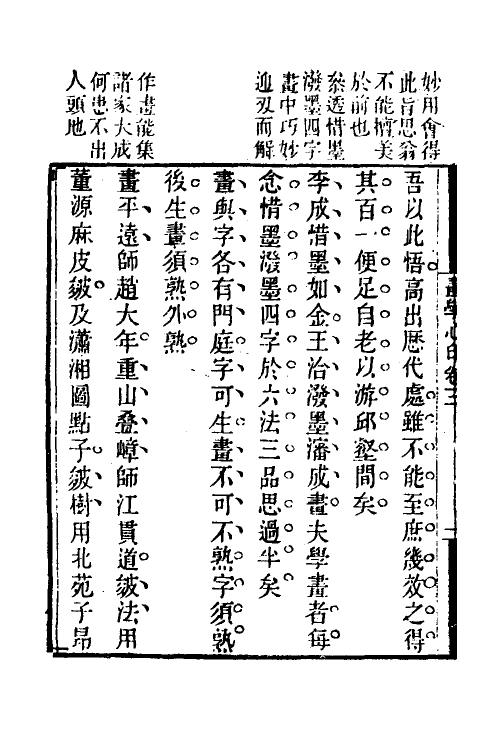 妙用會得
此旨思翁
不能擅美
於前也
叅透惜墨
潑墨四字
畫中巧妙
迎刃而解
作畫能集
諸家大成
何患不出
人頭地
畫學心印卷三
吾以此悟高出歷代處雖不能至庶幾效之得
其百一便足自老以游邱壑間矣
李成惜墨如金王洽潑墨瀋成畫夫學畫者每
念惜墨潑墨四字於六法三品思過半矣
畫與字各有門庭字可生畫不可不熟字須熟
後生畫須熟外熟
畫平遠師趙大年重山叠嶂師江貫道皴法用
董源麻皮皴及瀟湘圖點子皴樹用北苑子昂